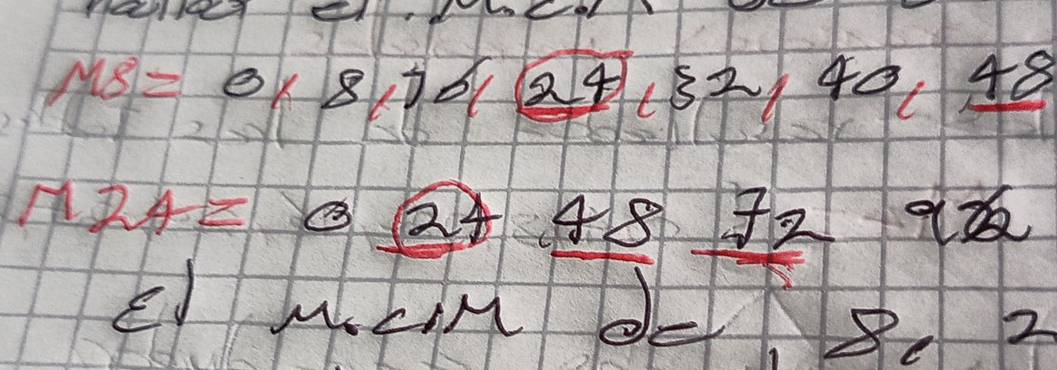 hallar El M.C.M de
M8= 0, 8, 16, 24, 32, 40, 48
M24= 0 24 48 72
El M.C.M de, 8, 2